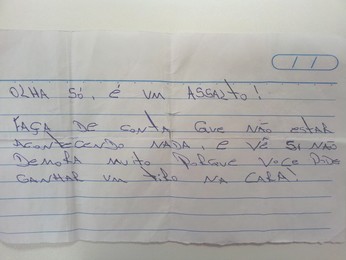 OLHA SÓ, É UM ASSALTO!
FAÇA DE CONTA QUE NÃO ESTAR
ACONTECENDO NADA, E VÊ SI NÃO
DEMORA MUITO PORQUE VOCE PODE
GANHAR UM TIRO NA CARA!